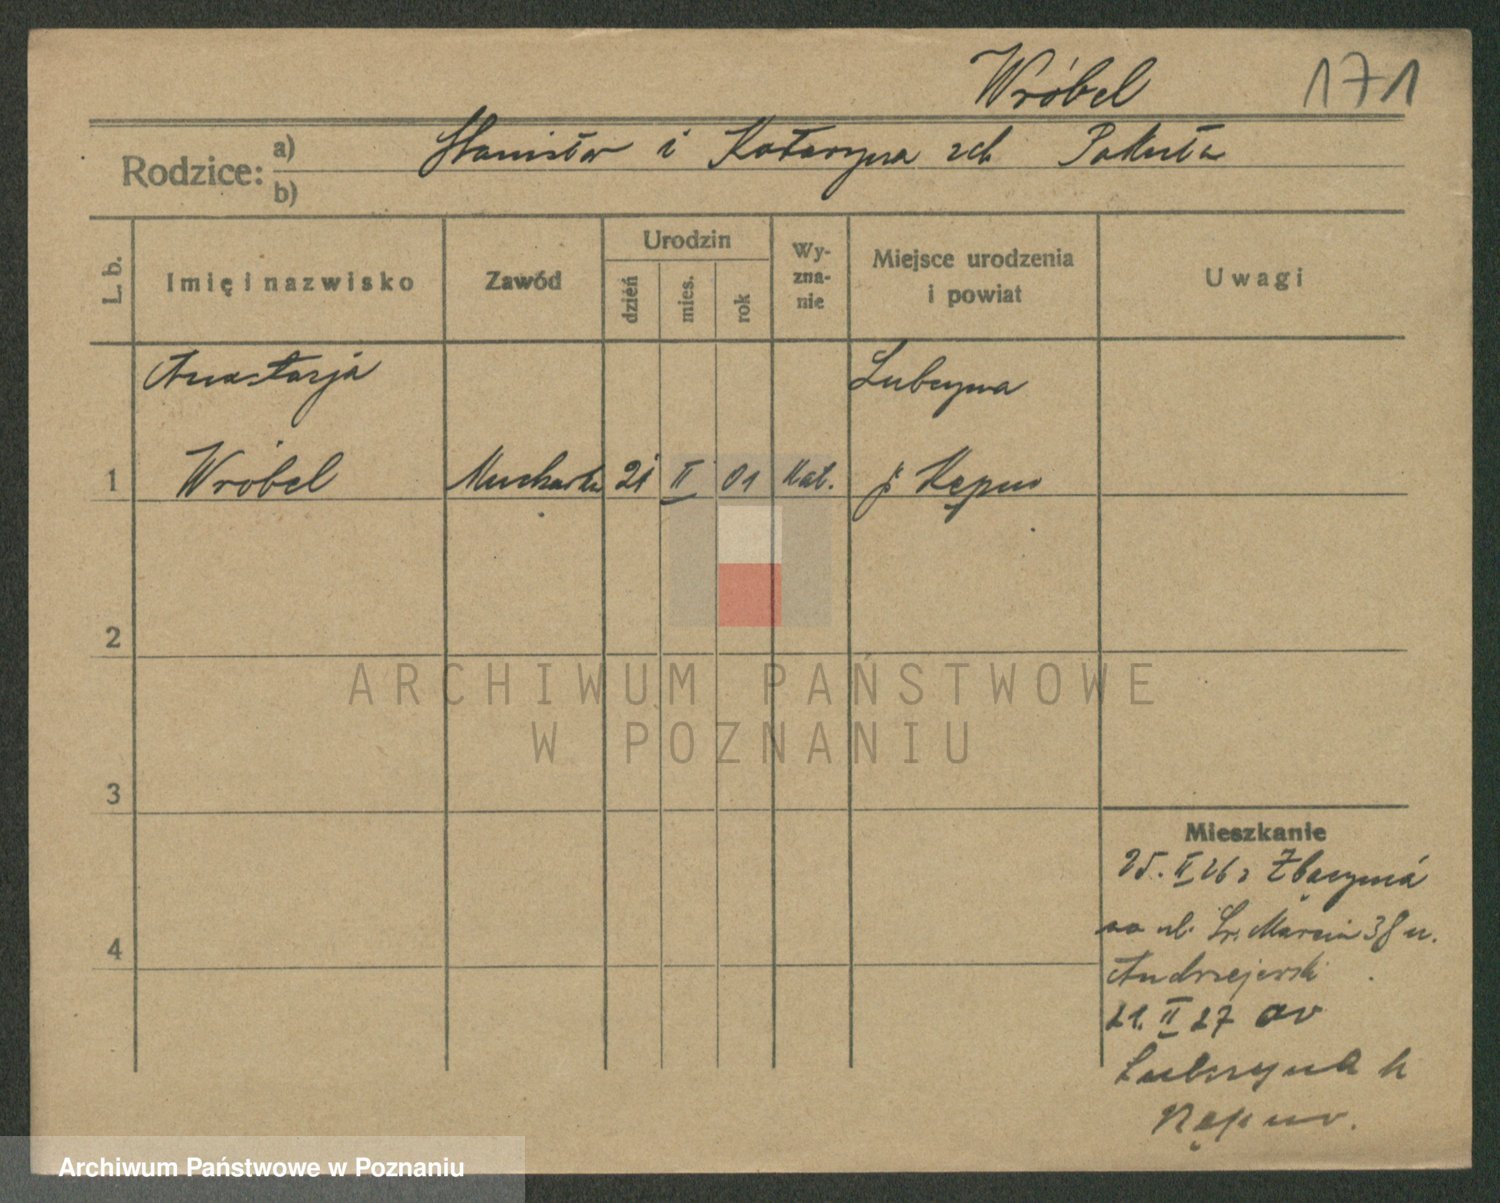 Wróbel 171
Rodzice: a) Stanisław i Katarzyna zd.
b)
L. b. Imię i nazwisko Zawód Urodzin dzień mies. rok Wy-zna-nie Miejsce urodzenia i powiat Uwagi
Anastazja Lubczyna
1 Wróbel Kucharka 21 II 01 Kat. p. Kępno
2
ARCHIWUM PAŃSTWOWE
W POZNANIU
3
Mieszkanie
25. II 26 z
na ul. Św. Marcin 38 u.
4
Andrzejewski
21. II 27 do
Lubczyna p.
Kępno.
Archiwum Państwowe w Poznaniu